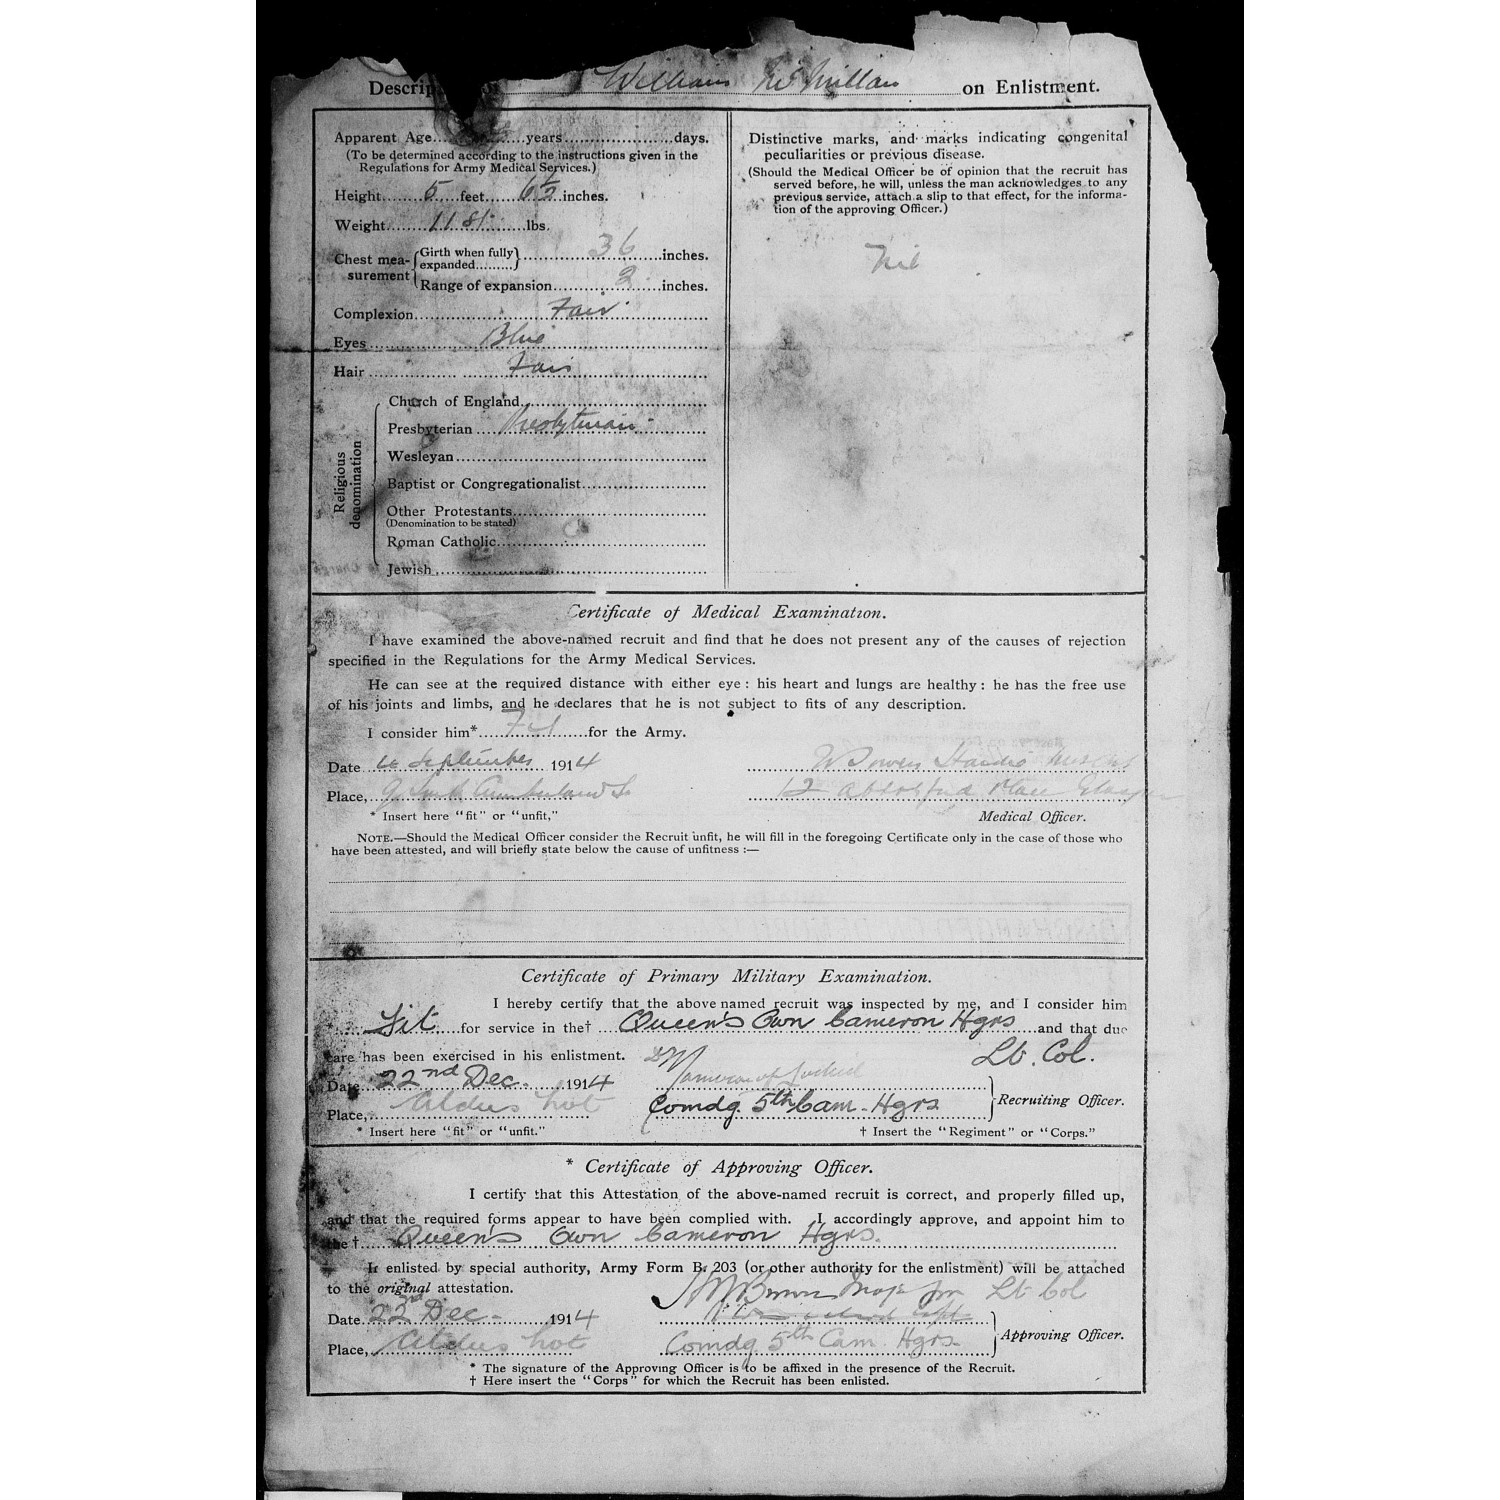 Descrip William McMillan on Enlistment.
Apparent Age years days.
(To be determined according to the instructions given in the
Regulations for Army Medical Services.)
Height 5 feet 6½ inches.
Weight 11 St. lbs.
Chest mea-surement { Girth when fully expanded 36 inches.
Range of expansion 3 inches.
Complexion Fair
Eyes Blue
Hair Fair
Religious denomination
Church of England
Presbyterian Presbyterian
Wesleyan
Baptist or Congregationalist
Other Protestants
(Denomination to be stated)
Roman Catholic
Jewish
Distinctive marks, and marks indicating congenital
peculiarities or previous disease.
(Should the Medical Officer be of opinion that the recruit has
served before, he will, unless the man acknowledges to any
previous service, attach a slip to that effect, for the informa-
tion of the approving Officer.)
Nil
Certificate of Medical Examination.
I have examined the above-named recruit and find that he does not present any of the causes of rejection
specified in the Regulations for the Army Medical Services.
He can see at the required distance with either eye : his heart and lungs are healthy : he has the free use
of his joints and limbs, and he declares that he is not subject to fits of any description.
I consider him* Fit for the Army.
Date September 1914
Place, Cumberland St
12 Abbotsford Place Glasgow
* Insert here "fit" or "unfit,"
Medical Officer.
NOTE.—Should the Medical Officer consider the Recruit unfit, he will fill in the foregoing Certificate only in the case of those who
have been attested, and will briefly state below the cause of unfitness :—
Certificate of Primary Military Examination.
I hereby certify that the above named recruit was inspected by me, and I consider him
Fit for service in the† Queen's Own Cameron Hgrs and that due
care has been exercised in his enlistment. Lt. Col.
Date 22nd Dec. 1914 Cameron of Lochiel
Place, Aldershot Comdg. 5th Cam. Hgrs Recruiting Officer.
* Insert here "fit" or "unfit."
† Insert the "Regiment" or "Corps."
* Certificate of Approving Officer.
I certify that this Attestation of the above-named recruit is correct, and properly filled up,
and that the required forms appear to have been complied with. I accordingly approve, and appoint him to
the † Queen's Own Cameron Hgrs.
If enlisted by special authority, Army Form B. 203 (or other authority for the enlistment) will be attached
to the original attestation. Lt Col
Date 22nd Dec. 1914
Place, Aldershot Comdg. 5th Cam. Hgrs. Approving Officer.
* The signature of the Approving Officer is to be affixed in the presence of the Recruit.
† Here insert the "Corps" for which the Recruit has been enlisted.